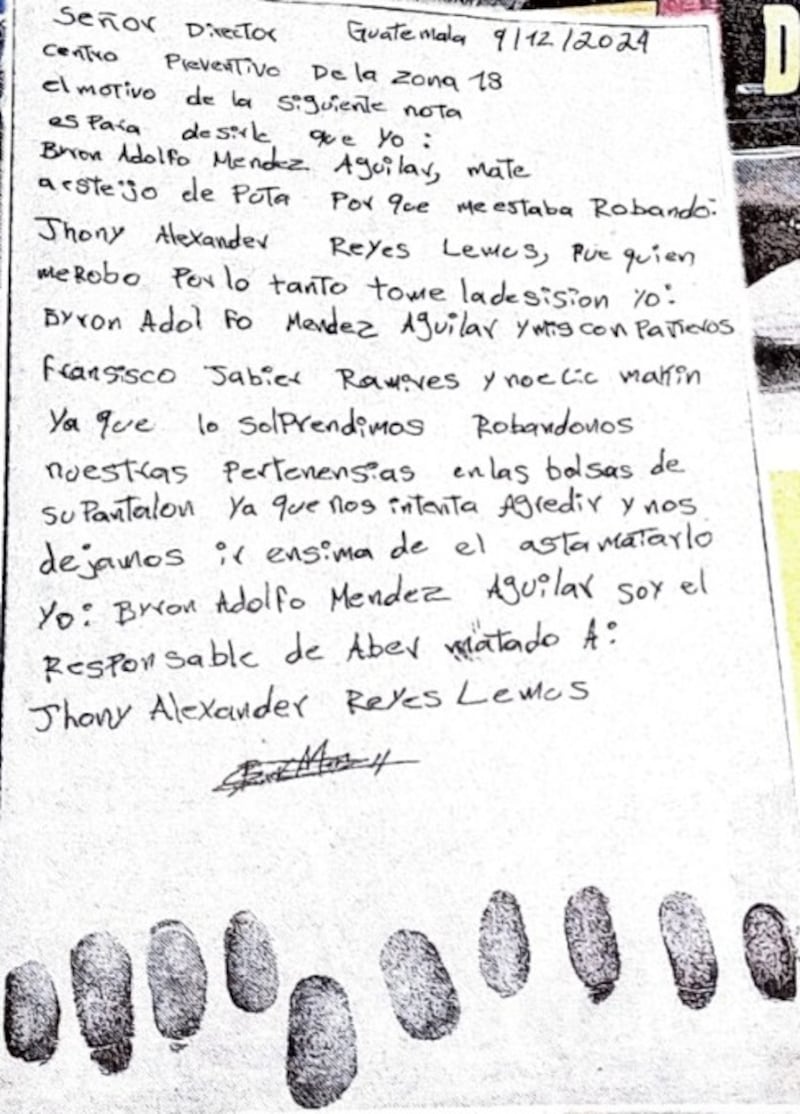 Señor Director Guatemala 9/12/2024
centro Preventivo De la zona 18
el motivo de la siguiente nota
es Para desirle que yo:
Byron Adolfo Mendez Aguilar, mate
a este ijo de Puta Por que me estaba Robando:
Jhony Alexander Reyes Lemus, fue quien
me Robo Por lo tanto tome la desision yo:
Byron Adolfo Mendez Aguilar y mis conpañeros
fransisco Jabier Ramires y noe Cic makin
ya que lo solprendimos Robandonos
nuestras pertenensias en las bolsas de
su Pantalon ya que nos intenta Agredir y nos
dejamos ir ensima de el asta matarlo
yo: Byron Adolfo Mendez Aguilar soy el
Responsable de Aber matado A:
Jhony Alexander Reyes Lemus
D